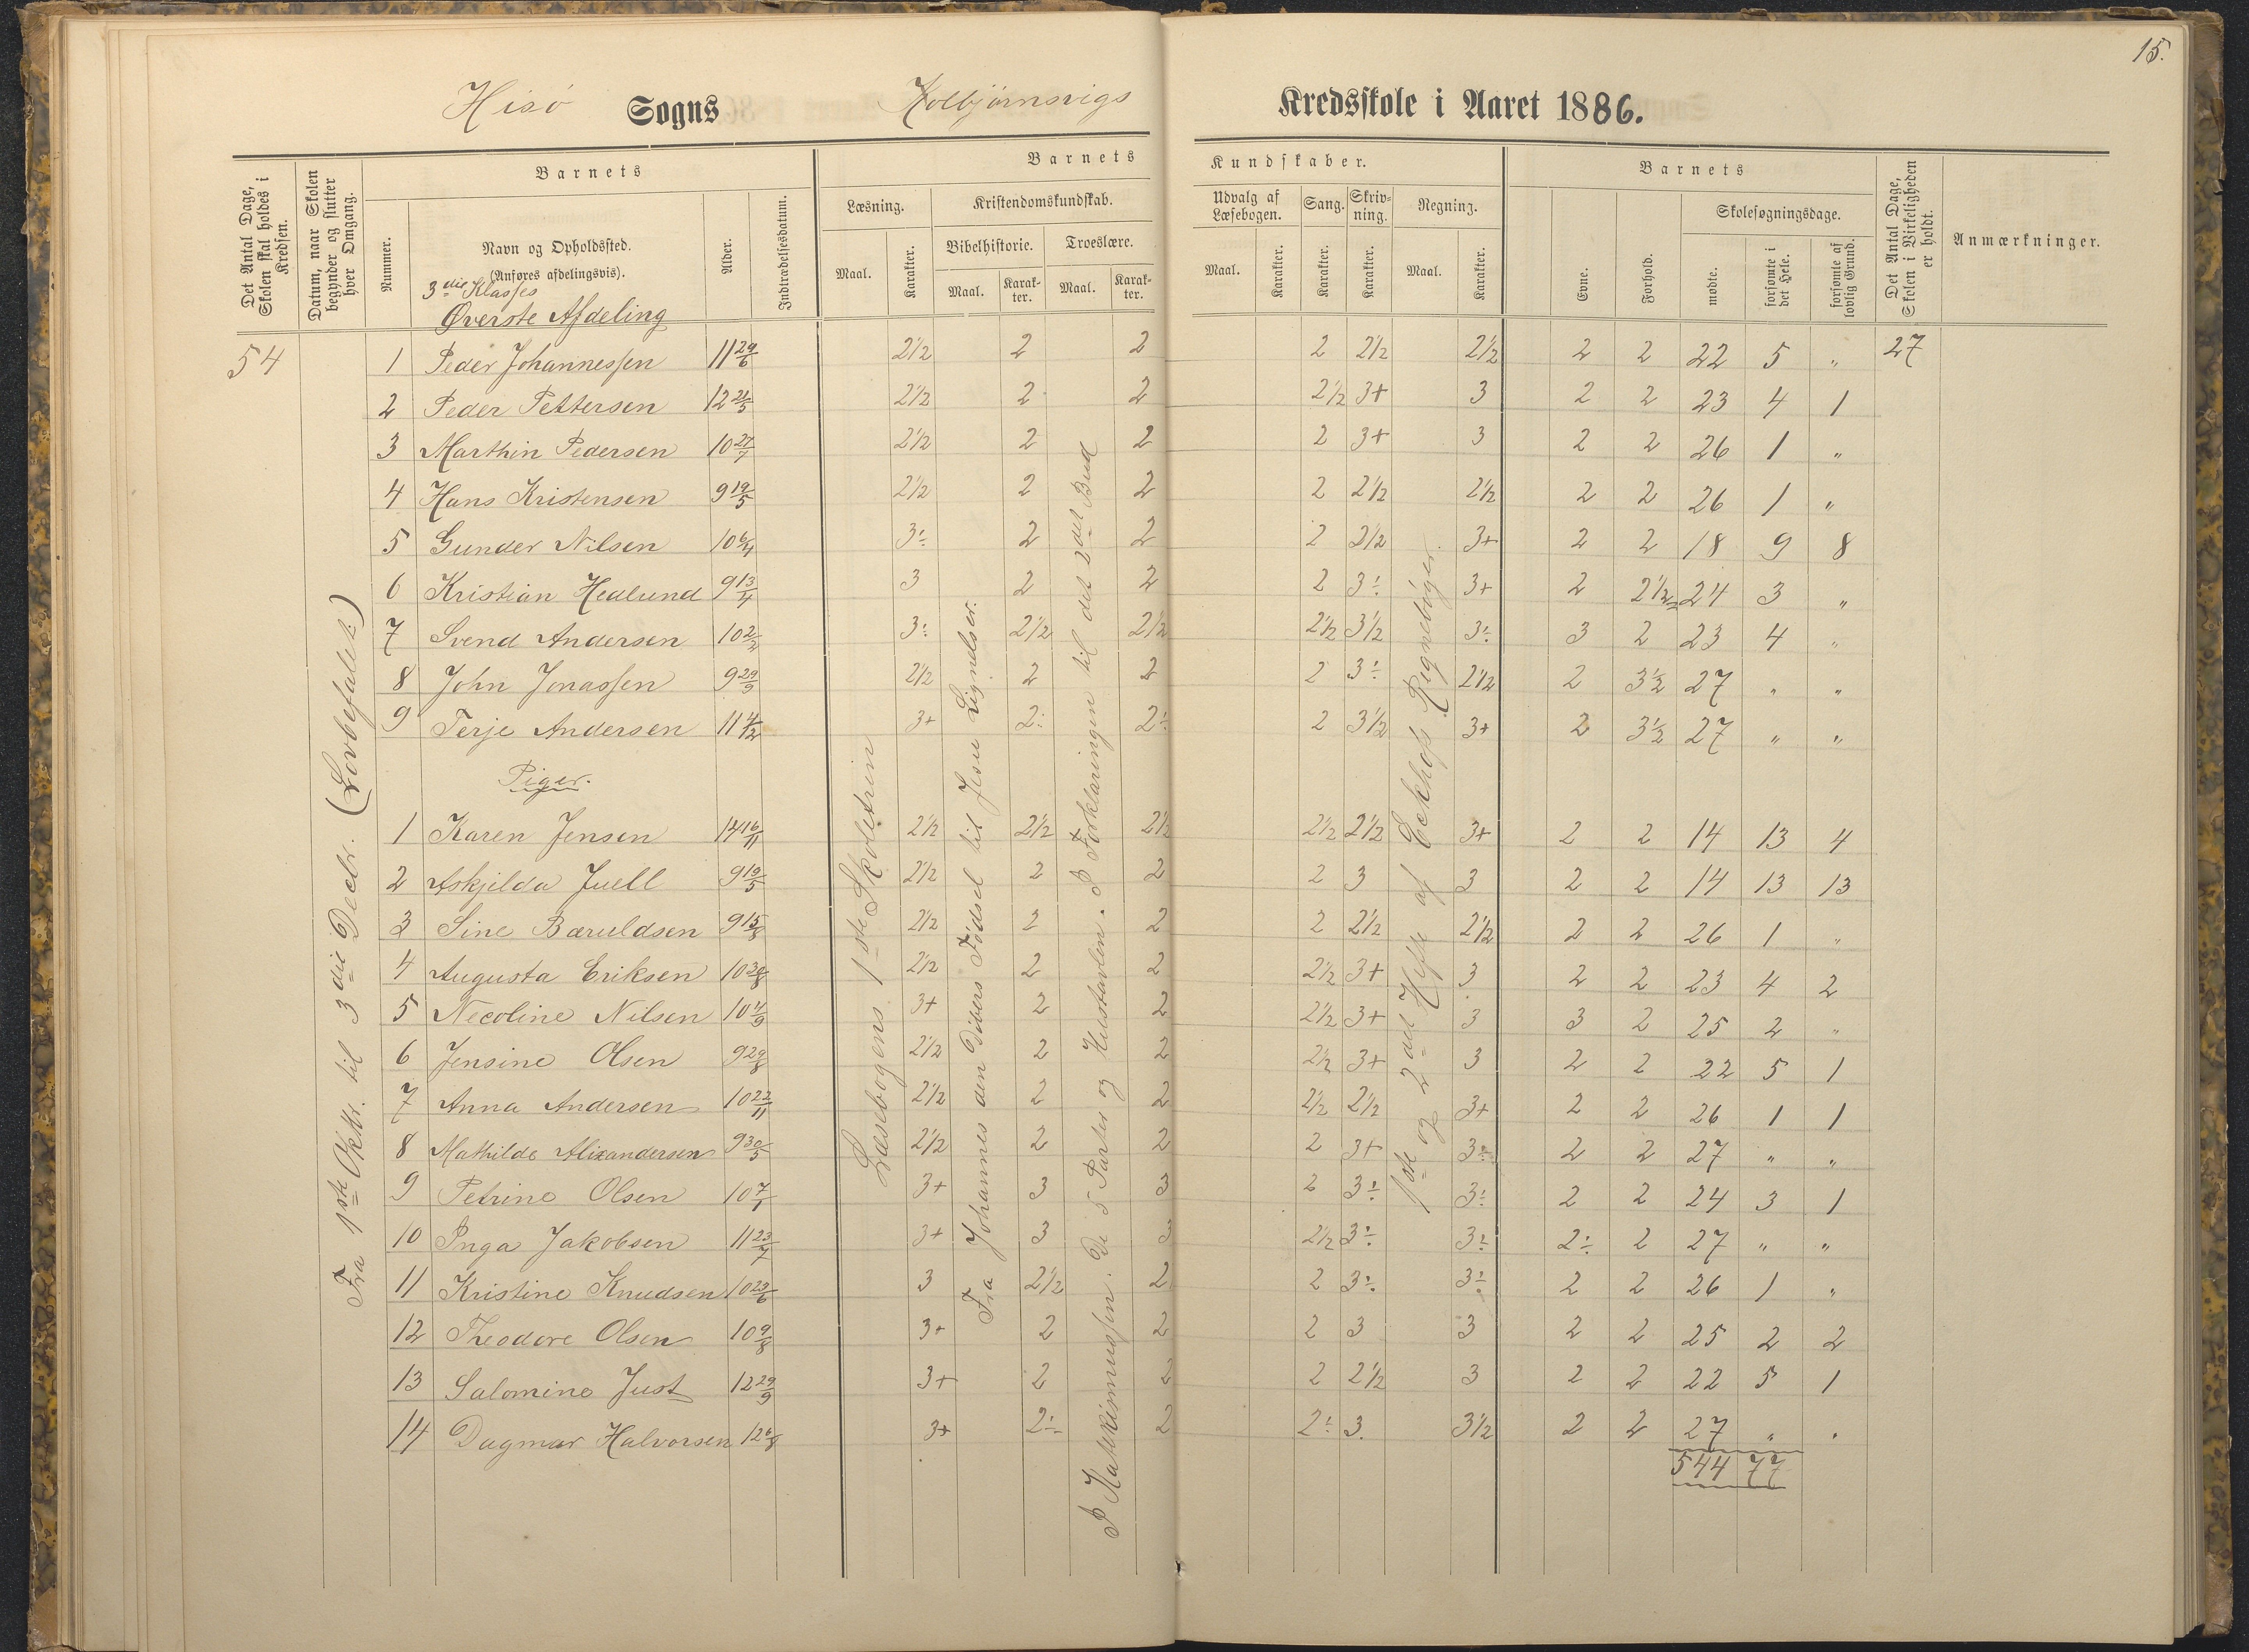 15.
Hisö Sogns Kolbjörnsvigs Kredsskole i Aaret 1886.
Det Antal Dage, Skolen skal holdes i Kredsen.
Datum, naar Skolen begynder og slutter hver Omgang.
Barnets
Nummer.
Navn og Opholdssted.
(Anføres afdelingsvis).
Alder.
Indtrædelsesdatum.
Barnets Kundskaber.
Læsning.
Maal.
Karakter.
Kristendomskundskab.
Bibelhistorie.
Maal.
Karakter.
Troeslære.
Maal.
Karakter.
Udvalg af Læsebogen.
Maal.
Karakter.
Sang.
Karakter.
Skrivning.
Karakter.
Regning.
Maal.
Karakter.
Barnets
Evne.
Forhold.
Skolesøgningsdage.
mødte.
forsømte i det Hele.
forsømte af lovlig Grund.
Det Antal Dage, Skolen i Virkeligheden er holdt.
Anmærkninger.
3die Klasses
Øverste Afdeling
54 1 Peder Johannessen 11 29/6 2½ 2 2 2 2½ 2½ 2 2 22 5 " 27
2 Peder Pettersen 12 21/5 2½ 2 2 2½ 3+ 3 2 2 23 4 1
3 Marthin Pedersen 10 27/7 2½ 2 2 2 3+ 3 2 2 26 1 "
4 Hans Kristensen 9 19/5 2½ 2 2 2 2½ 2½ 2 2 26 1 "
5 Gunder Nilsen 10 6/4 3÷ 2 2 2 2½ 3+ 2 2 18 9 8
6 Kristian Hedlund 9 13/4 3 2 2 2 3÷ 3+ 2 2½ 24 3 "
7 Svend Andersen 10 2/2 3÷ 2½ 2½ 2½ 3½ 3÷ 3 2 23 4 "
8 John Jonassen 9 29/9 2½ 2 2 2 3÷ 2½ 2 3½ 27 " "
9 Terje Andersen 11 4/12 3+ 2÷ 2÷ 2 3½ 3+ 2 3½ 27 " "
Piger.
1 Karen Jensen 14 16/11 2½ 2½ 2½ 2½ 2½ 3+ 2 2 14 13 4
2 Askjilda Juell 9 19/5 2½ 2 2 2 3 3 2 2 14 13 13
3 Sine Baruldsen 9 15/8 2½ 2 2 2 2½ 2½ 2 2 26 1 "
4 Augusta Eriksen 10 30/8 2½ 2 2 2½ 3+ 3 2 2 23 4 2
5 Necoline Nilsen 10 4/9 3+ 2 2 2½ 3+ 3 3 2 25 2 "
6 Jensine Olsen 9 29/8 2½ 2 2 2½ 3+ 3 2 2 22 5 1
7 Anna Andersen 10 22/11 2½ 2 2 2½ 2½ 3+ 2 2 26 1 1
8 Mathilde Alixandersen 9 30/5 2½ 2 2 2 3+ 3÷ 2 2 27 " "
9 Petrine Olsen 10 7/1 3+ 3 3 2 3÷ 3÷ 2 2 24 3 1
10 Inga Jakobsen 11 23/7 3+ 3 3 2½ 3÷ 3÷ 2÷ 2 27 " "
11 Kristine Knudsen 10 23/6 3 2½ 2 2 3÷ 3÷ 2 2 26 1 "
12 Theodore Olsen 10 9/8 3+ 2 2 2 3 3 2 2 25 2 2
13 Salomine Just 12 29/9 3+ 2 2 2 2½ 3 2 2 22 5 1
14 Dagmar Halvorsen 12 6/8 3+ 2÷ 2 2÷ 3. 3½ 2 2 27 " "
544 77
Fra 1ste Oktr. til 3die Decbr. (Lovbefalet)
Læsebogens 1ste Skoletrin
Fra Johannes den Døbers Fødsel til Jesu Lignelser.
I Katekismussen. De 5 Parter og Hustavlen. I Forklaringen til det 2det Bud
1ste og 2det Hefte af Eckhofs Regnebøger.